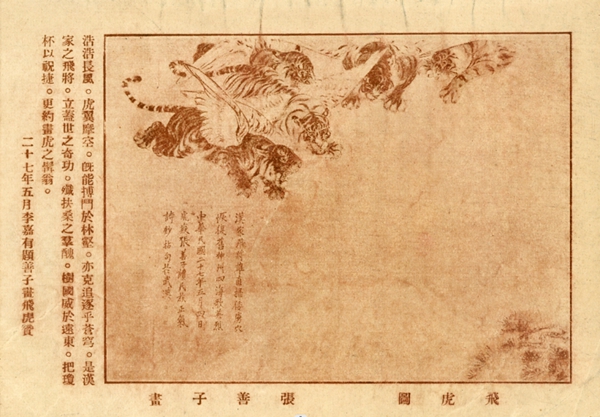 飛虎圖　張善子畫
漢家飛將
中華民國二十七年五月四日
浩浩長風。虎翼摩空。旣能搏鬥於林壑。亦克追逐乎蒼穹。是漢
家之飛將。立蓋世之奇功。殲扶桑之羣醜。樹國威於遠東。把瓊
杯以祝捷。更約畫虎之髯翁。
二十七年五月李嘉有題善子畫飛虎賛